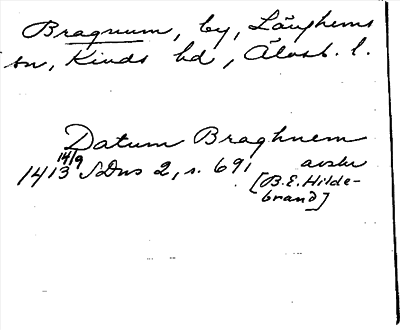 Bragnum, by, Länghems
sn, Kinds hd, Älvsb. l.
Datum Braghnem
14/9
1413 SDns 2, s. 691 avskr
[B.E. Hilde-
brand]